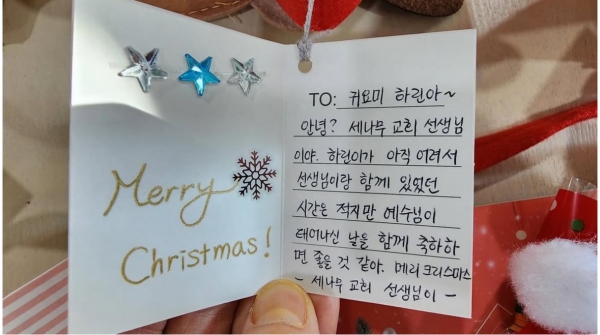 Merry
Christmas!
TO: 귀요미 하린아~
안녕? 세나무 교회 선생님
이야. 하린이가 아직 어려서
선생님이랑 함께 있었던
시간은 적지만 예수님이
태어나신 날을 함께 축하하
면 좋을 것 같아. 메리크리스마스
- 세나무 교회 선생님이 -